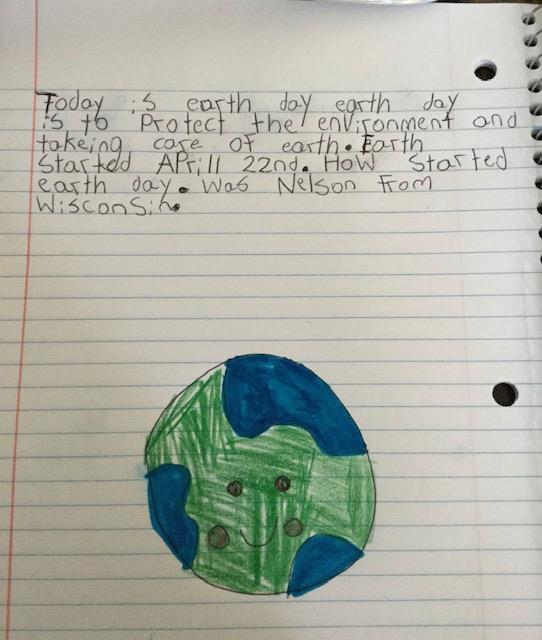 Today is earth day earth day
is to Protect the environment and
takeing care of earth. Earth
Started APrill 22nd. How Started
earth day. Was Nelson From
Wisconsin.